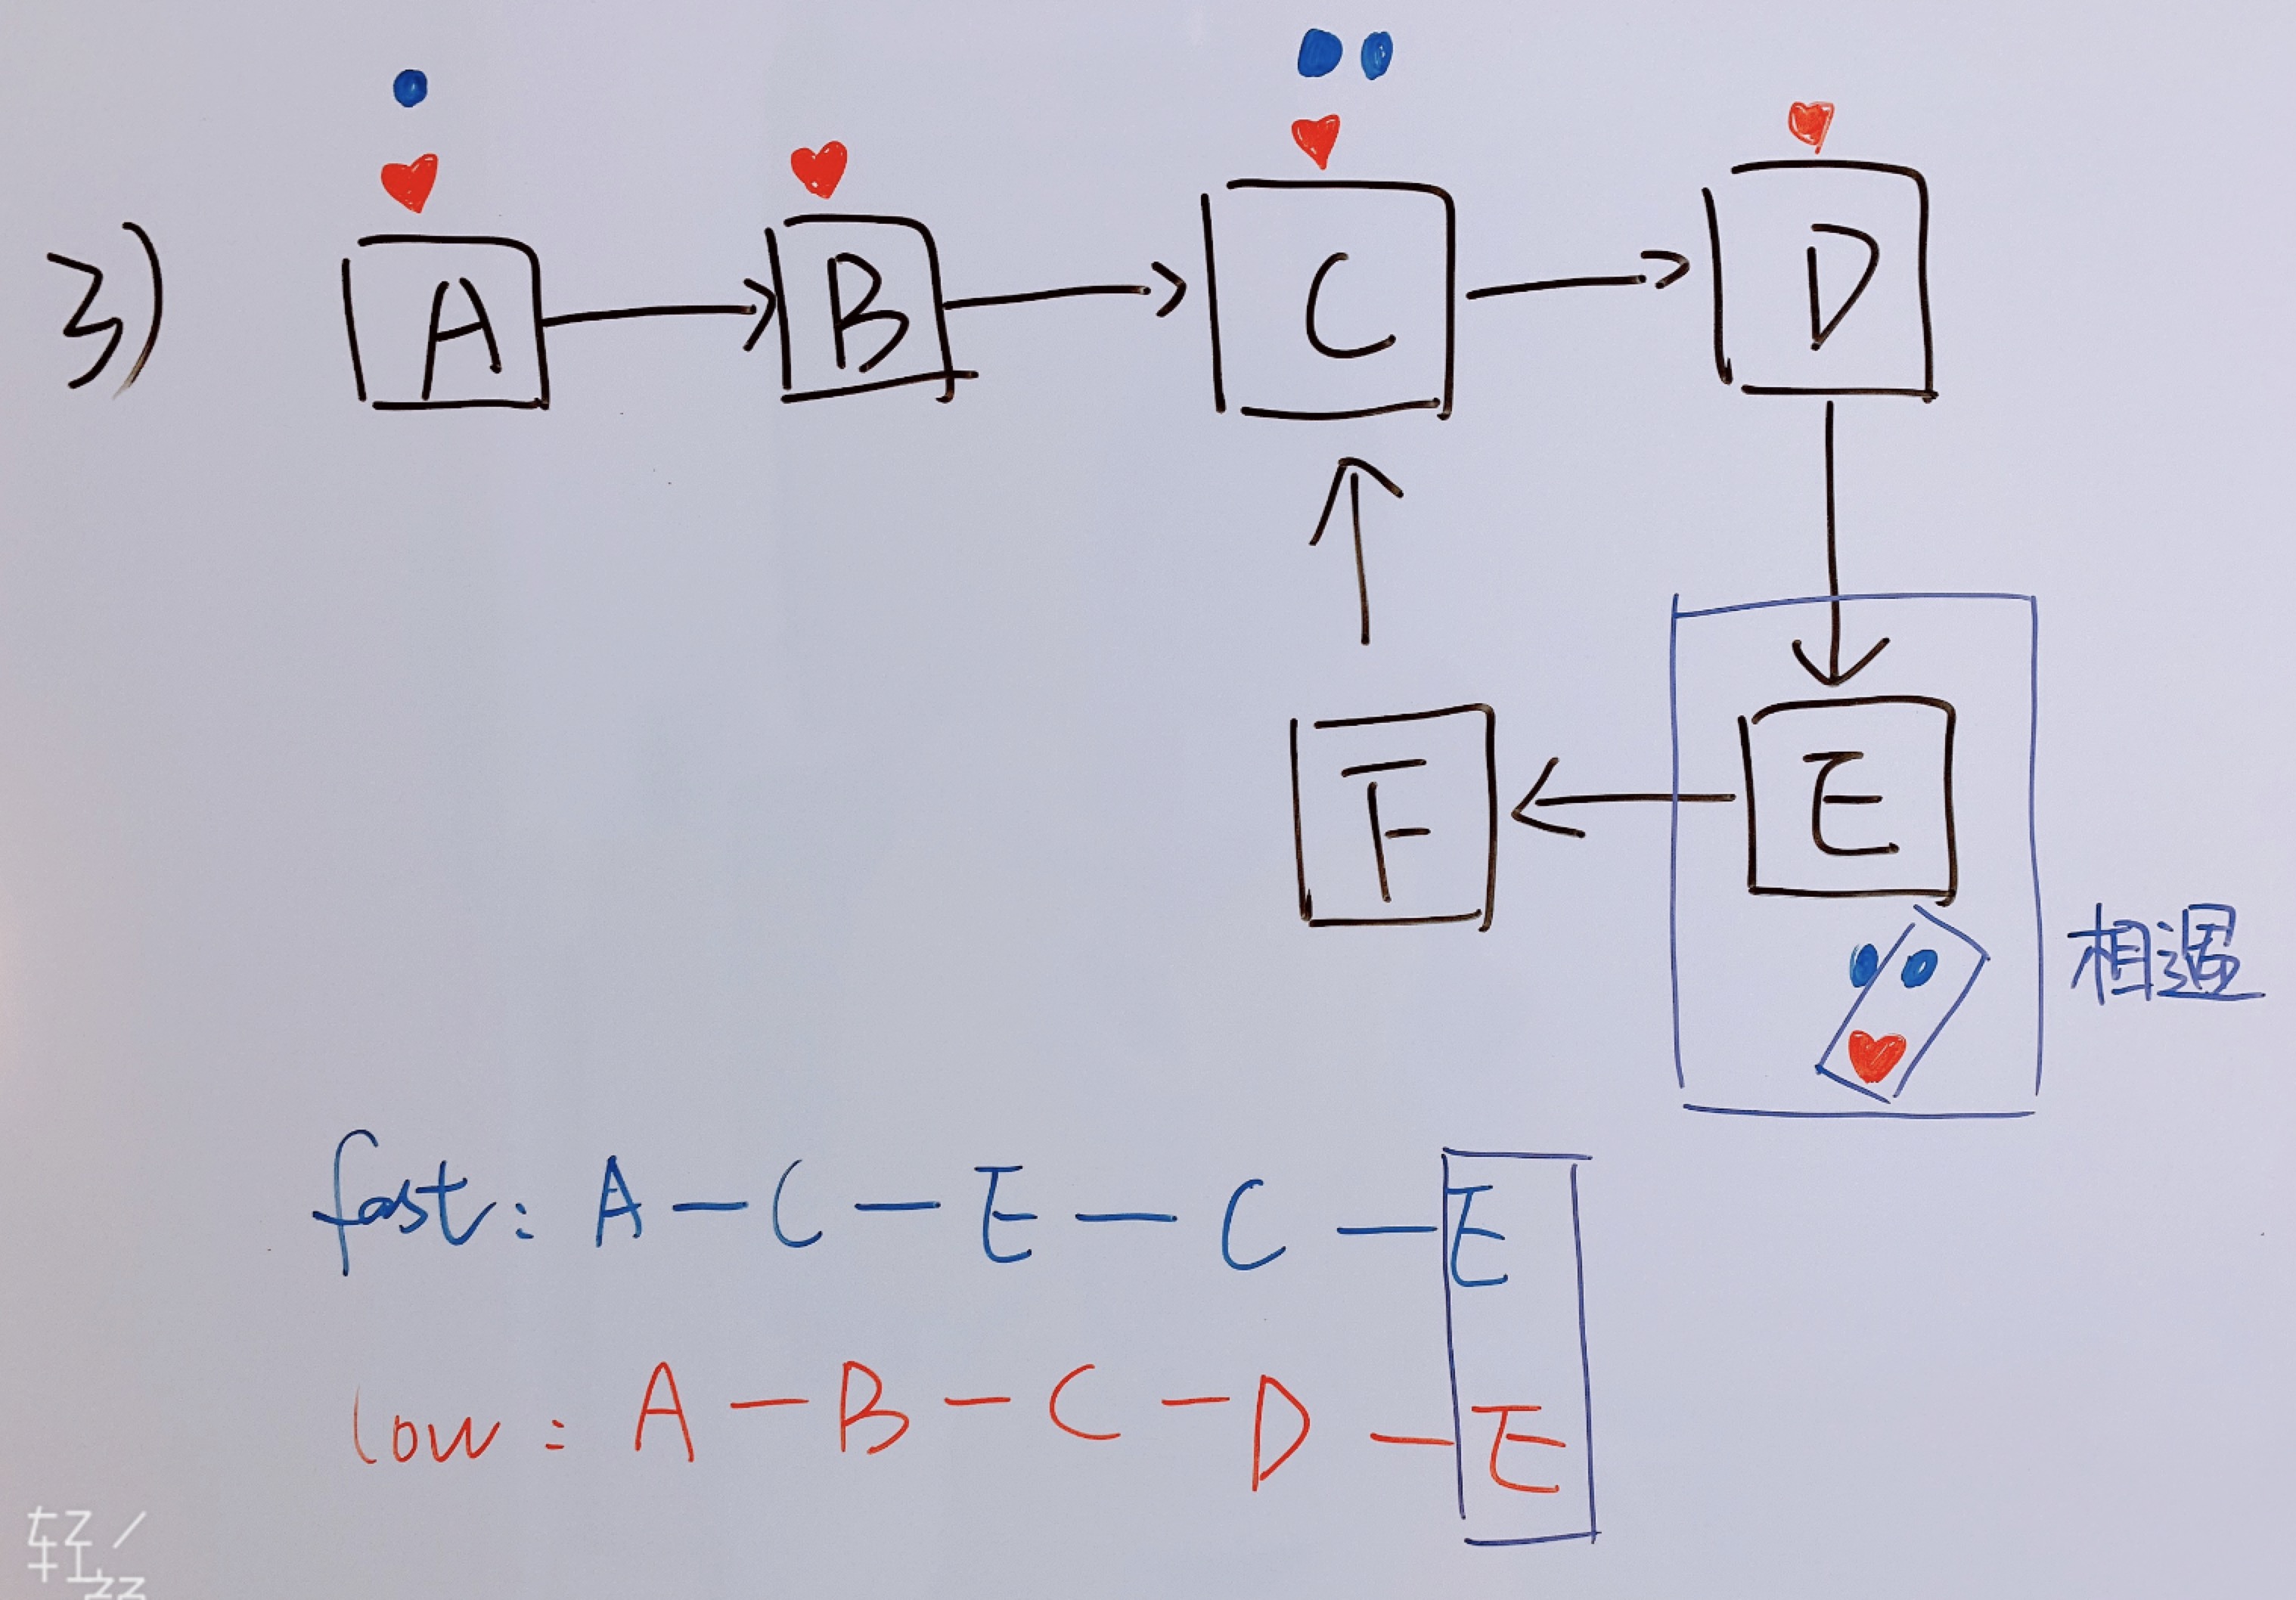 3)
A
B
C
D
F
E
相遇
fast: A — C — E — C — E
low: A — B — C — D — E